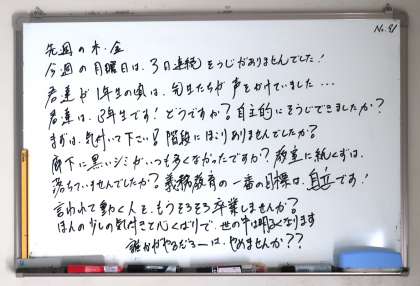 No.91
先週の木・金
今週の月曜日は、3日連続そうじがありませんでした!
君達が1年生の頃は、先生たちが声をかけていました…
君達は、3年生です!どうですか?自主的にそうじできましたか?
まずは、気付いて下さい!階段にほこりありませんでしたか?
廊下に黒いシミがいつも多くなかったですか?教室に紙くずは、
落ちていませんでしたか?義務教育の一番の目標は、自立です!
言われて動く人を、もうそろそろ卒業しませんか?
ほんの少しの気付きと心くばりで、世の中は明るくなります
誰かがやるだろーは、やめませんか??